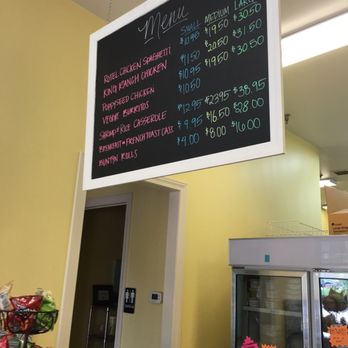 Menu
SMALL MEDIUM LARGE
ROTEL CHICKEN SPAGHETTI $10.95 $19.50 $30.50
KING RANCH CHICKEN $11.50 $20.50 $31.50
POPPYSEED CHICKEN $10.95 $19.50 $30.50
VEGGIE BURRITOS $10.50
SHRIMP & RICE CASSEROLE $12.95 $23.95 $38.95
BREAKFAST - FRENCH TOAST CASS. $9.95 $16.50 $28.00
BUNTYN ROLLS $4.00 $8.00 $16.00